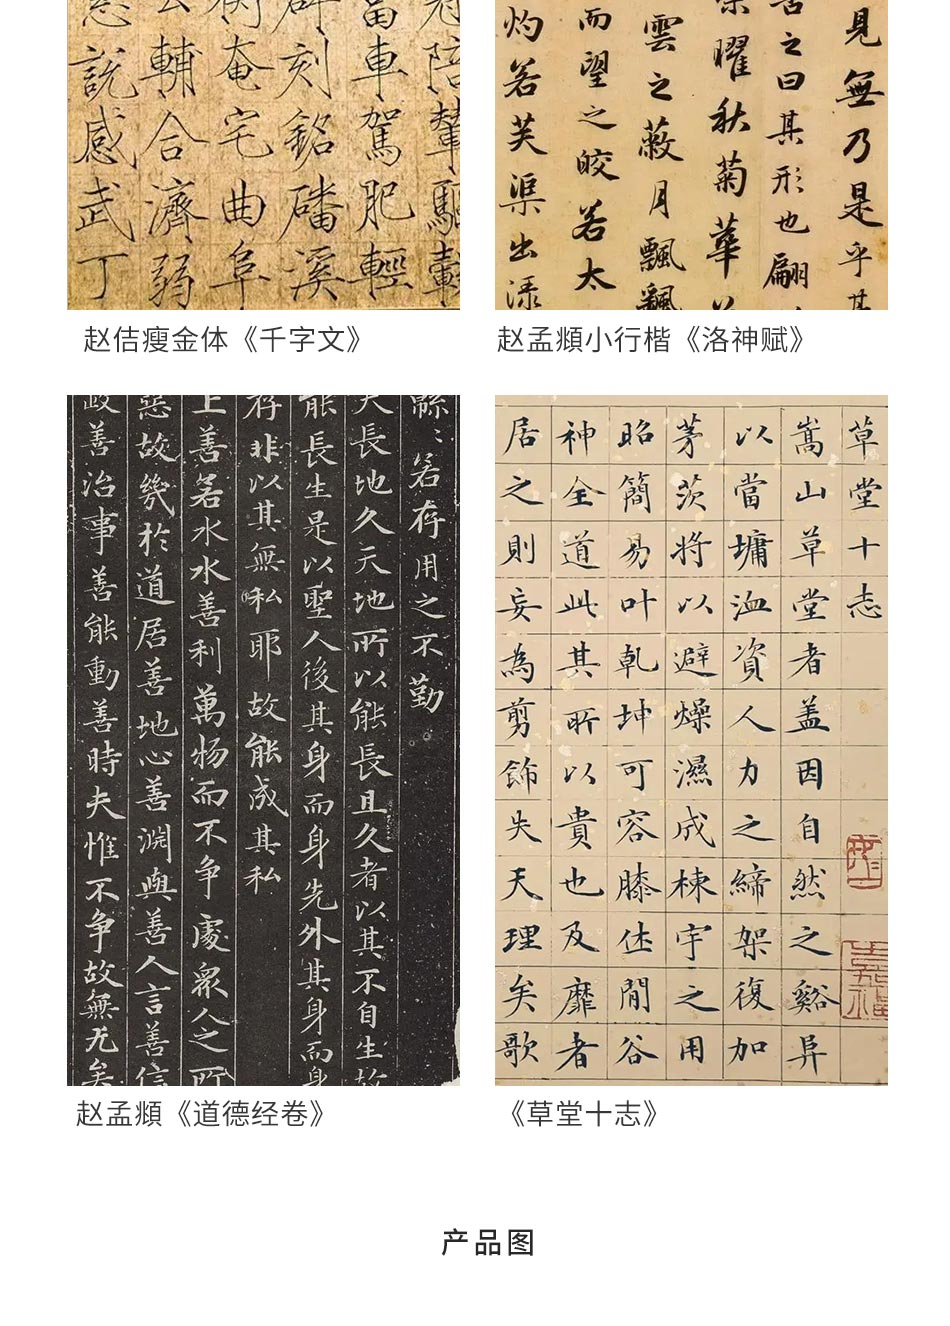 陪輦驅轂
富車駕肥輕
碑刻銘磻溪
衡奄宅曲阜
公輔合濟弱
惠說感武丁
見無乃是乎其
之曰其形也翩
榮曜秋菊華
雲之蔽月飄飄
而望之皎若太
灼若芙渠出渌
赵佶瘦金体《千字文》
赵孟頫小行楷《洛神赋》
緜〻若存用之不勤
天長地久天地所以能長且久者以其不自生故
能長生是以聖人後其身而身先外其身而身
存非以其無私耶故能成其私
上善若水水善利萬物而不争處衆人之所
惡故幾於道居善地心善淵與善人言善信
政善治事善能動善時夫惟不争故無尤矣
草堂十志
嵩山草堂者盖因自然之谿阜
以當墉洫資人力之締架復加
茅茨将以避燥濕成棟宇之用
昭簡易叶乾坤可容膝休閒谷
神全道此其所以貴也及靡者
居之則妄為剪飾失天理矣歌
赵孟頫《道德经卷》
《草堂十志》
产品图